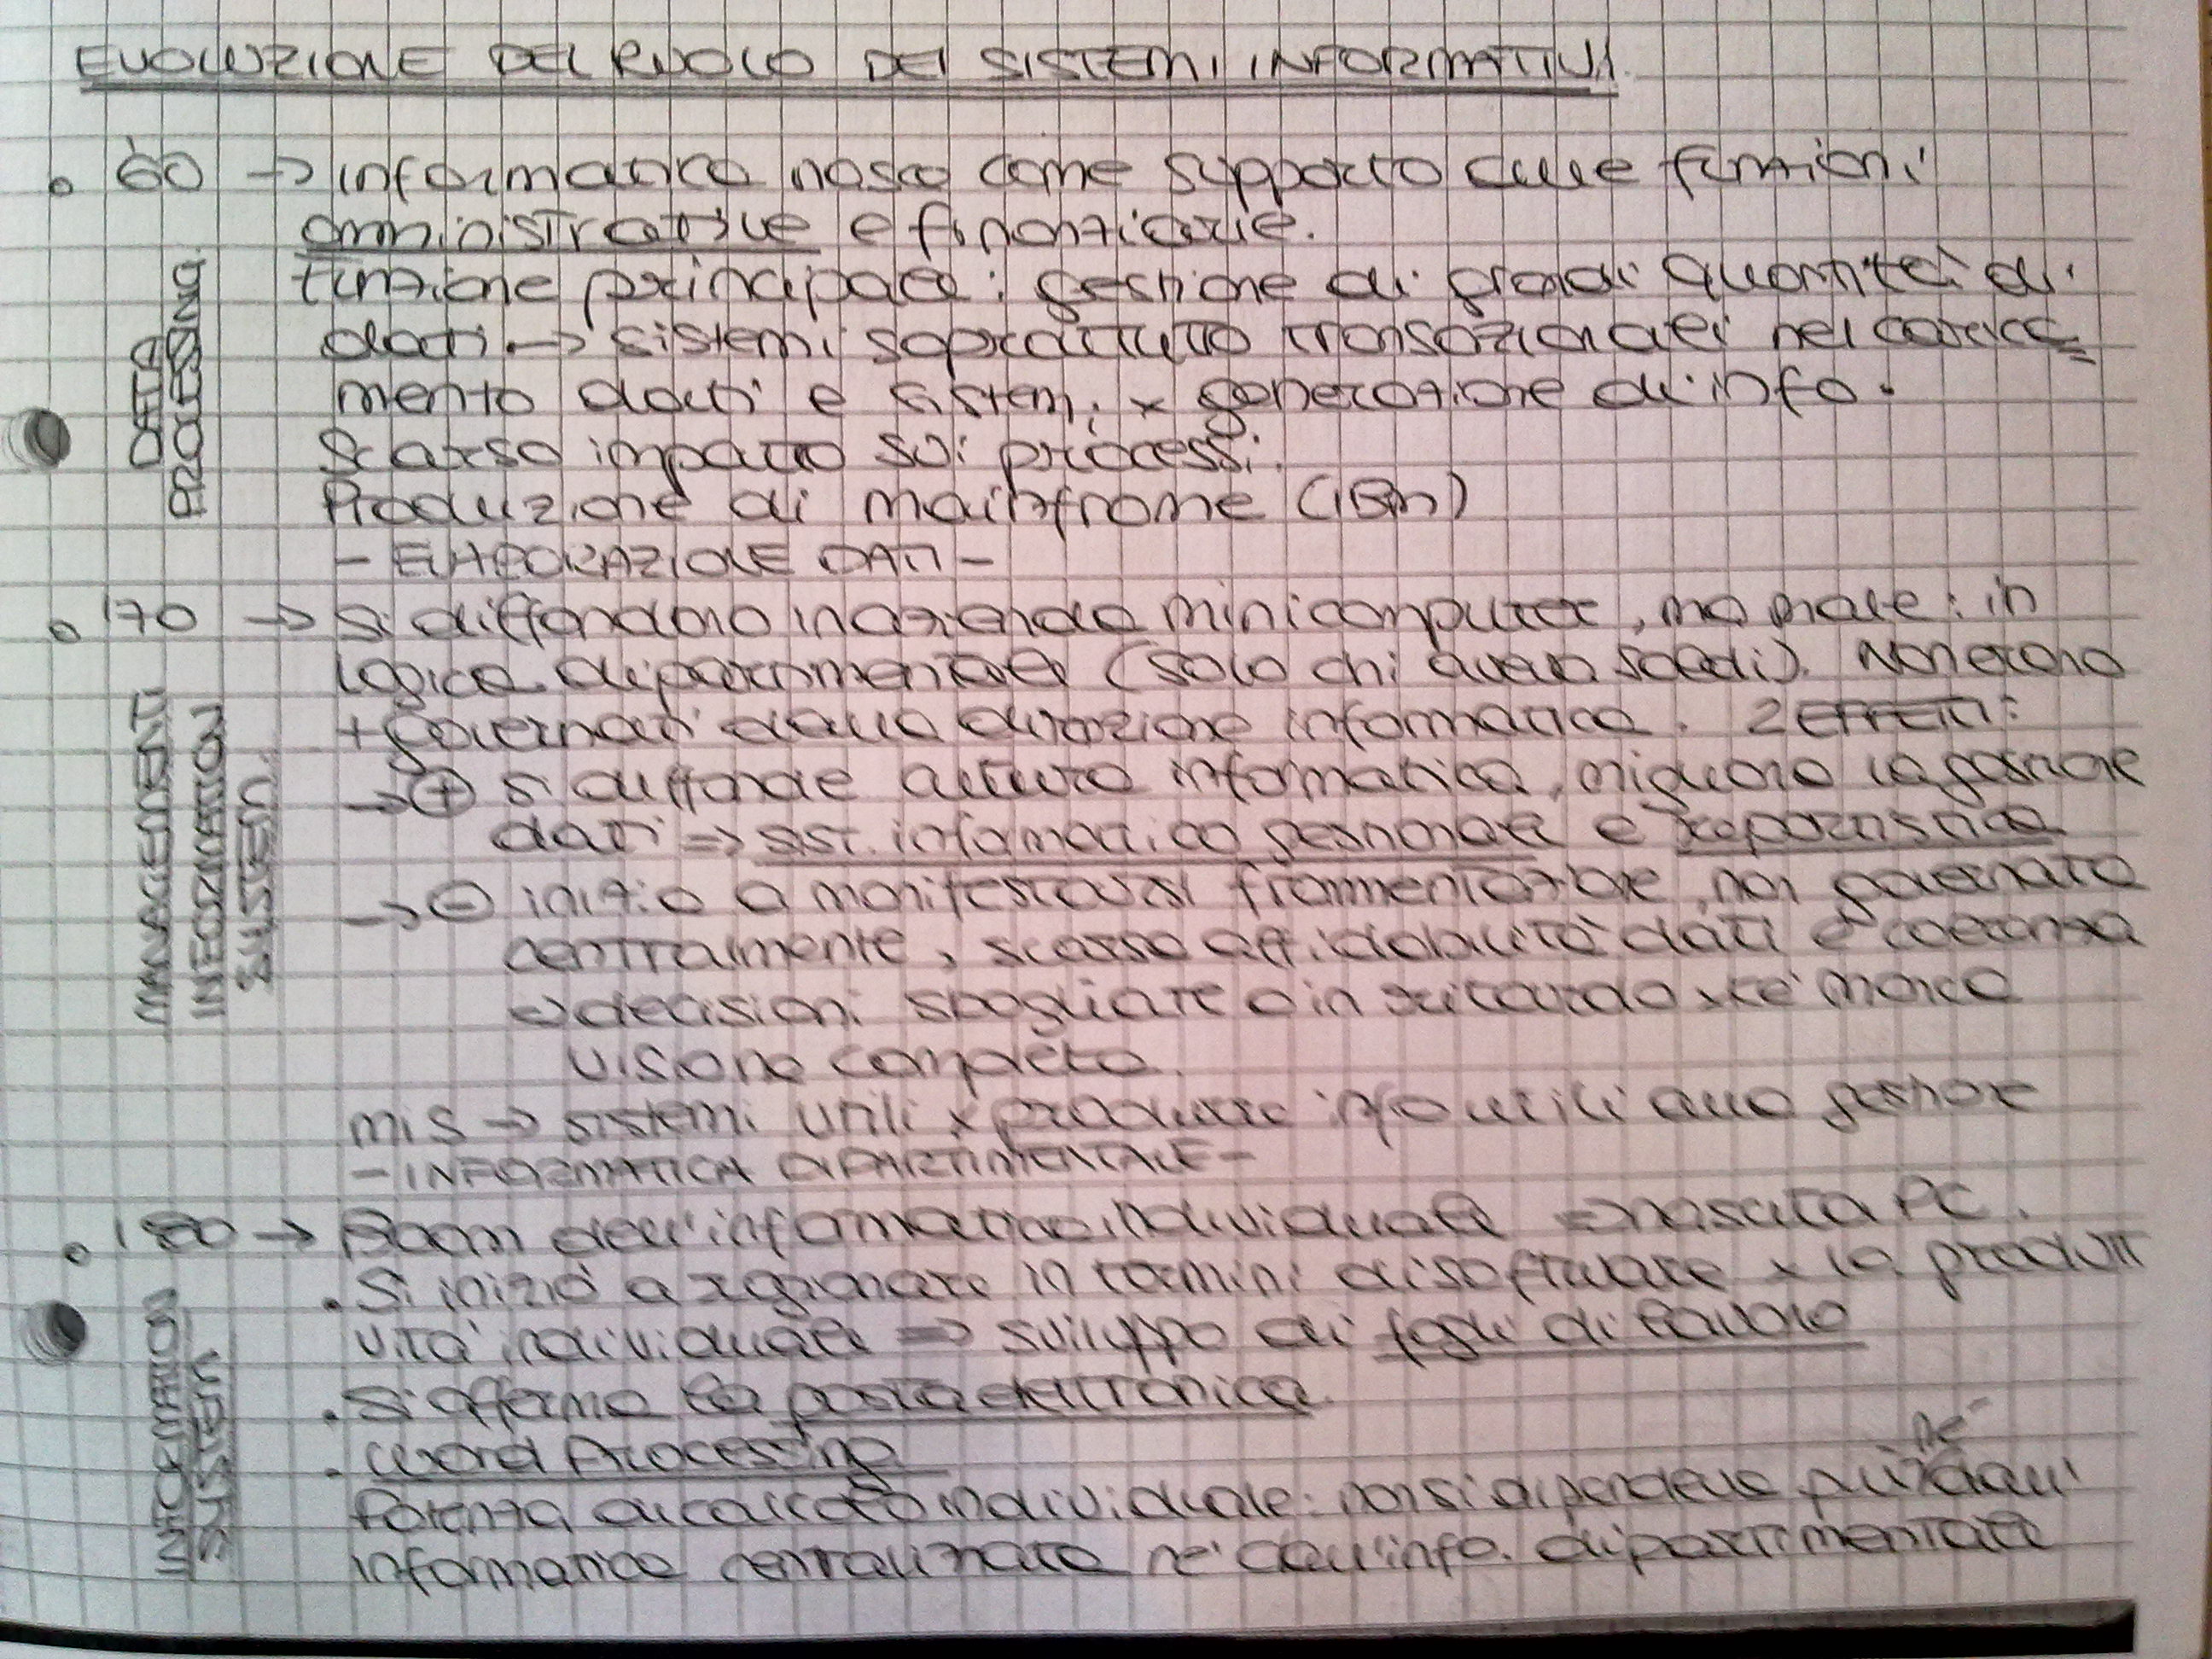 EVOLUZIONE DEL RUOLO DEI SISTEMI INFORMATIVI.
• '60 → informatica nasce come supporto alle funzioni
amministrative e finanziarie.
funzione principale: gestione di grandi quantità di
dati → sistemi soprattutto transazionali nel carica=
mento dati e sistemi x generazione di info.
Scarso impatto sui processi.
Produzione di mainframe (IBM)
- ELABORAZIONE DATI -
DATA
PROCESSING.
• '70 → si diffondono in azienda minicomputer, ma male: in
logica dipartimentale (solo chi aveva soldi). Non erano
+ governati dalla direzione informatica. 2 EFFETTI:
→ ⊕ si diffonde cultura informatica, migliora la gestione
dati ⇒ sist. informatico gestionale e reportistica
→ ⊖ inizia a manifestarsi frammentazione, non governata
centralmente, scarsa affidabilità dati e coerenza
⇒ decisioni sbagliate o in ritardo xké manca
visione completa.
MIS → sistemi utili x produrre info utili alla gestione
- INFORMATICA DIPARTIMENTALE -
MANAGEMENT
INFORMATION
SYSTEM.
• '80 → Boom dell'informatica individuale ⇒ nascita PC.
• Si iniziò a ragionare in termini di software x la produtti
vità individuale ⇒ sviluppo di fogli di lavoro
• Si afferma la posta elettronica.
• Word Processing
né
Potenza di calcolo individuale: non si dipendeva più dall'
informatica centralizzata né dall'info. dipartimentale
INFORMATION
SYSTEM